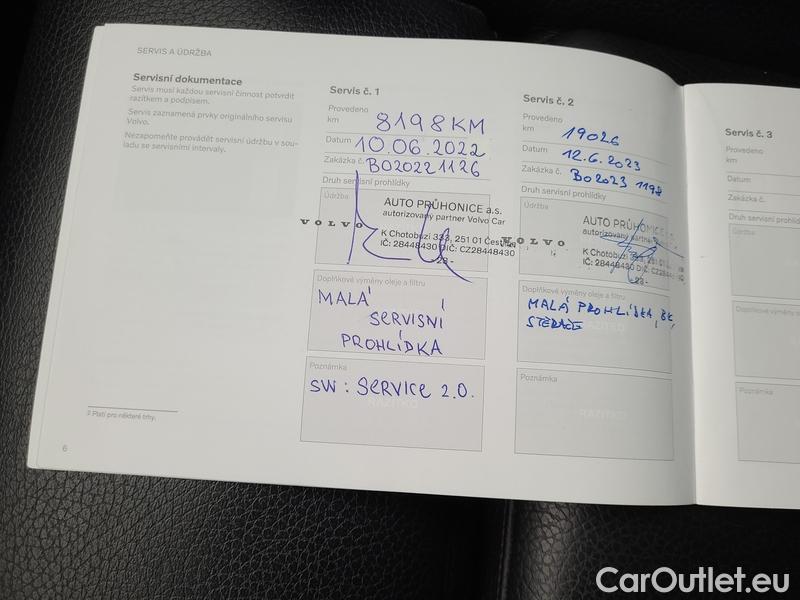 SERVIS A ÚDRŽBA
Servisní dokumentace
Servis musí každou servisní činnost potvrdit
razítkem a podpisem.
Servis zaznamená prvky originálního servisu
Volvo.
Nezapomeňte provádět servisní údržbu v sou-
ladu se servisními intervaly.
2 Platí pro některé trhy.
6
Servis č. 1
Provedeno
km 8198 KM
Datum 10.06.2022
Zakázka č. BO20221126
Druh servisní prohlídky
Údržba
AUTO PRŮHONICE a.s.
autorizovaný partner Volvo Car
VOLVO
K Chotobuzi 333, 251 01 Čestlice
IČ: 28448430 DIČ: CZ28448430
-23-
Doplňkové výměny oleje a filtru
MALÁ
SERVISNÍ
PROHLÍDKA
Poznámka
SW: SERVICE 2.0.
Servis č. 2
Provedeno
km 19026
Datum 12.6.2023
Zakázka č. BO2023 1198
Druh servisní prohlídky
Údržba
AUTO PRŮHONICE a.s.
autorizovaný partner
VOLVO
K Chotobuzi 333, 251 01
IČ: 28448430 DIČ: CZ28448430
-23-
Doplňkové výměny oleje a filtru
MALÁ PROHLÍDKA, BK,
STĚRAČE
Poznámka
RAZÍTKO
Servis č. 3
Provedeno
km
Datum
Zakázka č.
Druh servisní prohlíd
Údržba
Doplňkové výměny
Poznámka
CarOutlet.eu